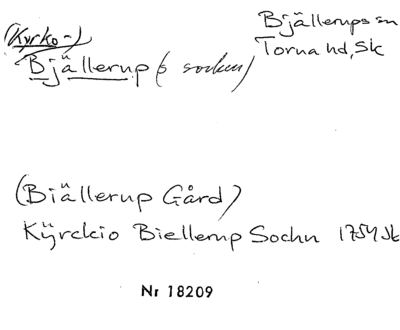 (Kyrko-)
Bjällerup(s socken)
Bjällerups sn
Torna hd, Sk
(Biällerup Gård)
Kÿrckio Biellerup Sochn 1754 Jb
Nr 18209